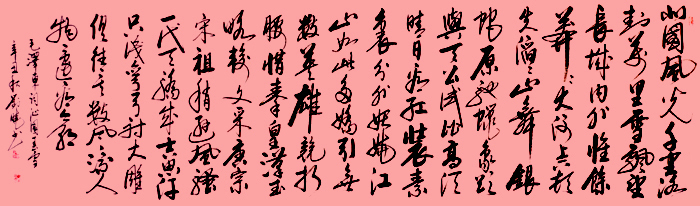 北國風光千里冰
封萬里雪飄望
長城内外惟餘
莽莽大河上下頓
失滔滔山舞銀
蛇原馳蠟象欲
與天公試比高須
晴日看紅裝素
裹分外妖嬈江
山如此多嬌引無
數英雄競折
腰惜秦皇漢武
略輸文采唐宗
宋祖稍遜風騷
一代天驕成吉思汗
只識彎弓射大雕
俱往矣數風流人
物還看今朝
毛澤東詞沁園春雪
辛丑秋